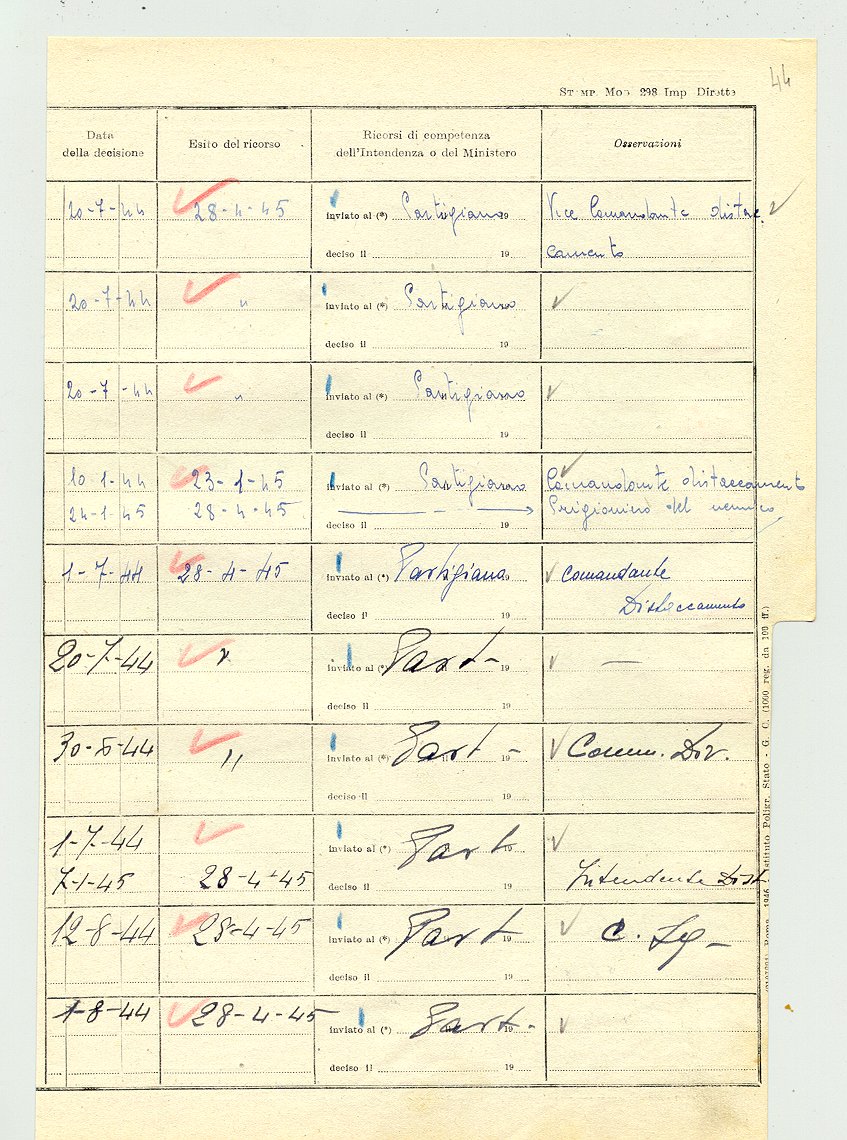 44
STAMP. MOD 298 Imp Dirette
Data della decisione
Esito del ricorso
Ricorsi di competenza dell'Intendenza o del Ministero
Osservazioni
20-7-44 28-4-45 inviato al (*) Partigiano 19 Vice Comandante distac
deciso il 19 camento
20-7-44 " inviato al (*) Partigiano
deciso il 19
20-7-44 " inviato al (*) Partigiano
deciso il 19
10-1-44 23-1-45 inviato al (*) Partigiano Comandante distaccamento
24-1-45 28-4-45 deciso il 19 Prigioniero del nemico
1-7-44 28-4-45 inviato al (*) Partigiano 19 Comandante
deciso il 19 Distaccamento
20-7-44 " inviato al (*) Part- 19 —
deciso il 19
30-8-44 " inviato al (*) Part - Comm. Div.
deciso il 19
1-7-44 inviato al (*) Part 19
7-1-45 28-4-45 deciso il 19 Intendente Dist
12-8-44 28-4-45 inviato al (*) Part 19 C. Sq-
deciso il 19
1-8-44 28-4-45 inviato al (*) Part- 19
deciso il 19
Istituto Poligr. Stato - G. C. (1000 reg. da 100 ff.)